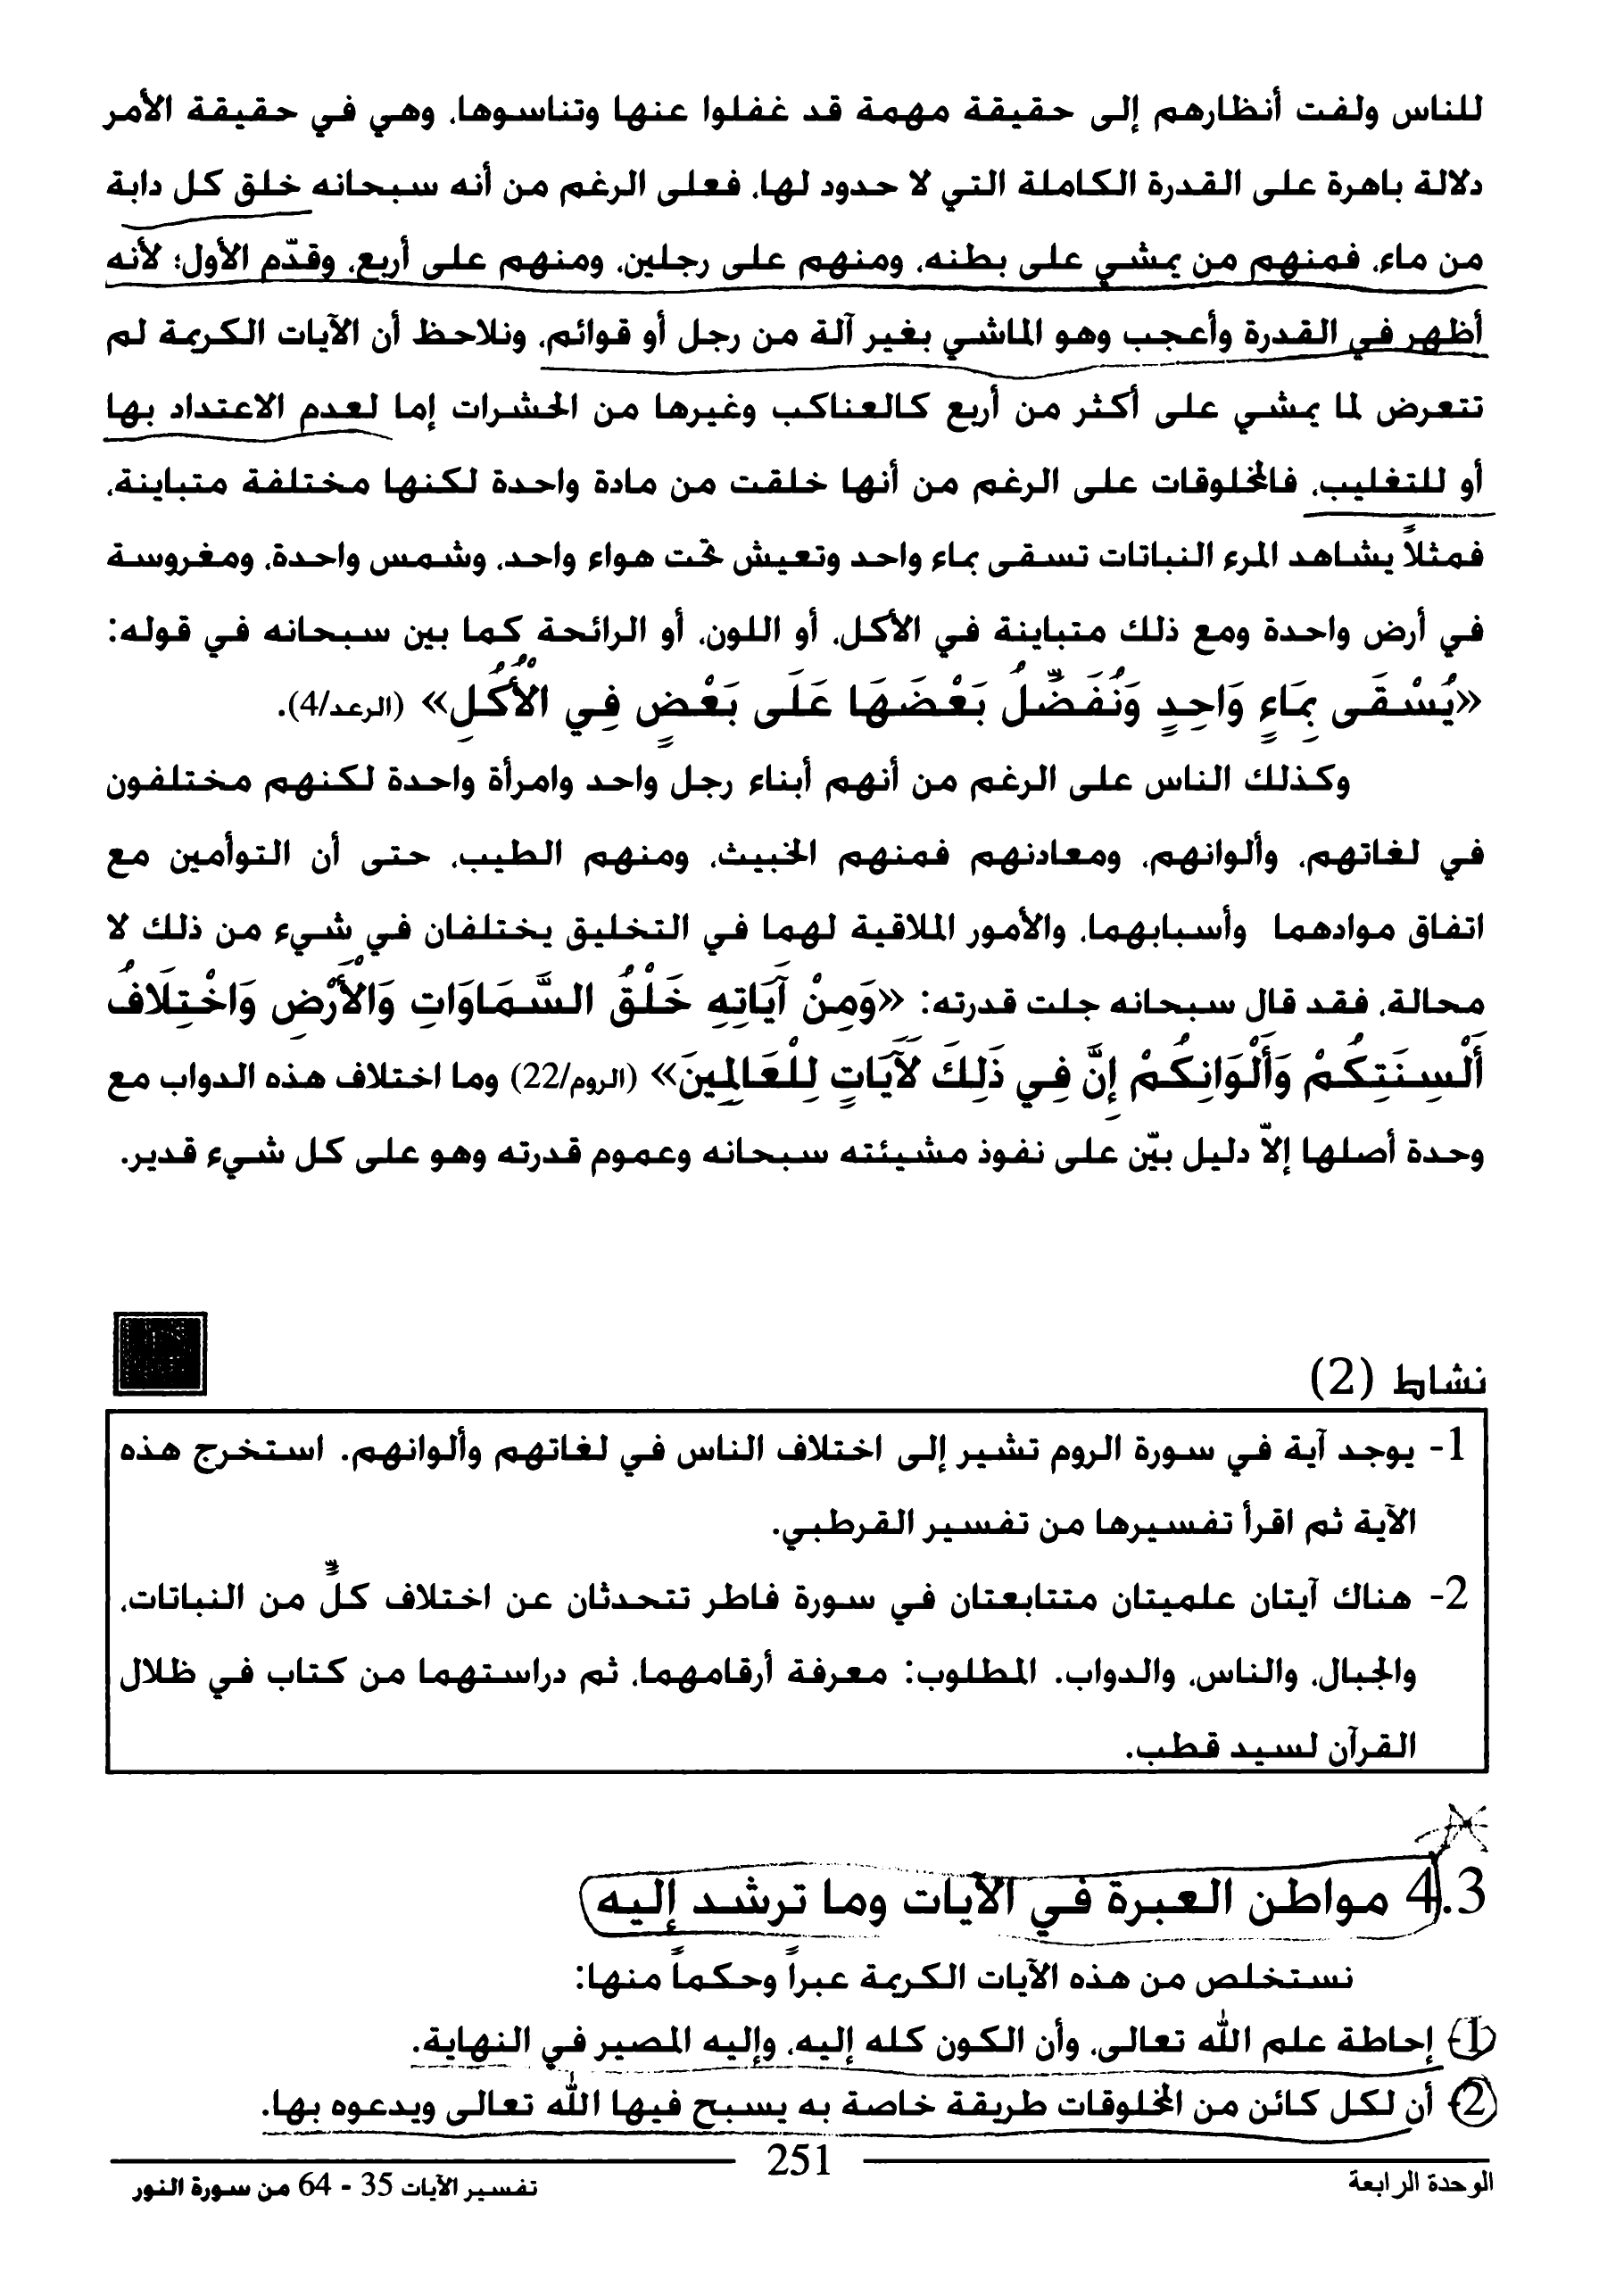 للناس ولفت أنظارهم إلى حقيقة مهمة قد غفلوا عنها وتناسوها، وهي في حقيقة الأمر
دلالة باهرة على القدرة الكاملة التي لا حدود لها، فعلى الرغم من أنه سبحانه خلق كل دابة
من ماء، فمنهم من يمشي على بطنه، ومنهم على رجلين، ومنهم على أربع، وقدّم الأول؛ لأنه
أظهر في القدرة وأعجب وهو الماشي بغير آلة من رجل أو قوائم، ونلاحظ أن الآيات الكريمة لم
تتعرض لما يمشي على أكثر من أربع كالعناكب وغيرها من الحشرات إما لعدم الاعتداد بها
أو للتغليب، فالمخلوقات على الرغم من أنها خلقت من مادة واحدة لكنها مختلفة متباينة،
فمثلاً يشاهد المرء النباتات تسقى بماء واحد وتعيش تحت هواء واحد، وشمس واحدة، ومغروسة
في أرض واحدة ومع ذلك متباينة في الأكل، أو اللون، أو الرائحة كما بين سبحانه في قوله:
«يُسْقَى بِمَاءٍ وَاحِدٍ وَنُفَضِّلُ بَعْضَهَا عَلَى بَعْضٍ فِي الْأُكُلِ» (الرعد/4).
وكذلك الناس على الرغم من أنهم أبناء رجل واحد وامرأة واحدة لكنهم مختلفون
في لغاتهم، وألوانهم، ومعادنهم فمنهم الخبيث، ومنهم الطيب، حتى أن التوأمين مع
اتفاق موادهما وأسبابهما، والأمور الملاقية لهما في التخليق يختلفان في شيء من ذلك لا
محالة، فقد قال سبحانه جلت قدرته: «وَمِنْ آيَاتِهِ خَلْقُ السَّمَاوَاتِ وَالْأَرْضِ وَاخْتِلَافُ
أَلْسِنَتِكُمْ وَأَلْوَانِكُمْ إِنَّ فِي ذَلِكَ لَآيَاتٍ لِلْعَالِمِينَ» (الروم/22) وما اختلاف هذه الدواب مع
وحدة أصلها إلاّ دليل بيّن على نفوذ مشيئته سبحانه وعموم قدرته وهو على كل شيء قدير.
نشاط (2)
1- يوجد آية في سورة الروم تشير إلى اختلاف الناس في لغاتهم وألوانهم. استخرج هذه
الآية ثم اقرأ تفسيرها من تفسير القرطبي.
2- هناك آيتان علميتان متتابعتان في سورة فاطر تتحدثان عن اختلاف كلٍّ من النباتات،
والجبال، والناس، والدواب. المطلوب: معرفة أرقامهما، ثم دراستهما من كتاب في ظلال
القرآن لسيد قطب.
4.3 مواطن العبرة في الآيات وما ترشد إليه
نستخلص من هذه الآيات الكريمة عبراً وحكماً منها:
1- إحاطة علم الله تعالى، وأن الكون كله إليه، وإليه المصير في النهاية.
2- أن لكل كائن من المخلوقات طريقة خاصة به يسبح فيها الله تعالى ويدعوه بها.
الوحدة الرابعة 251 تفسير الآيات 35 - 64 من سورة النور